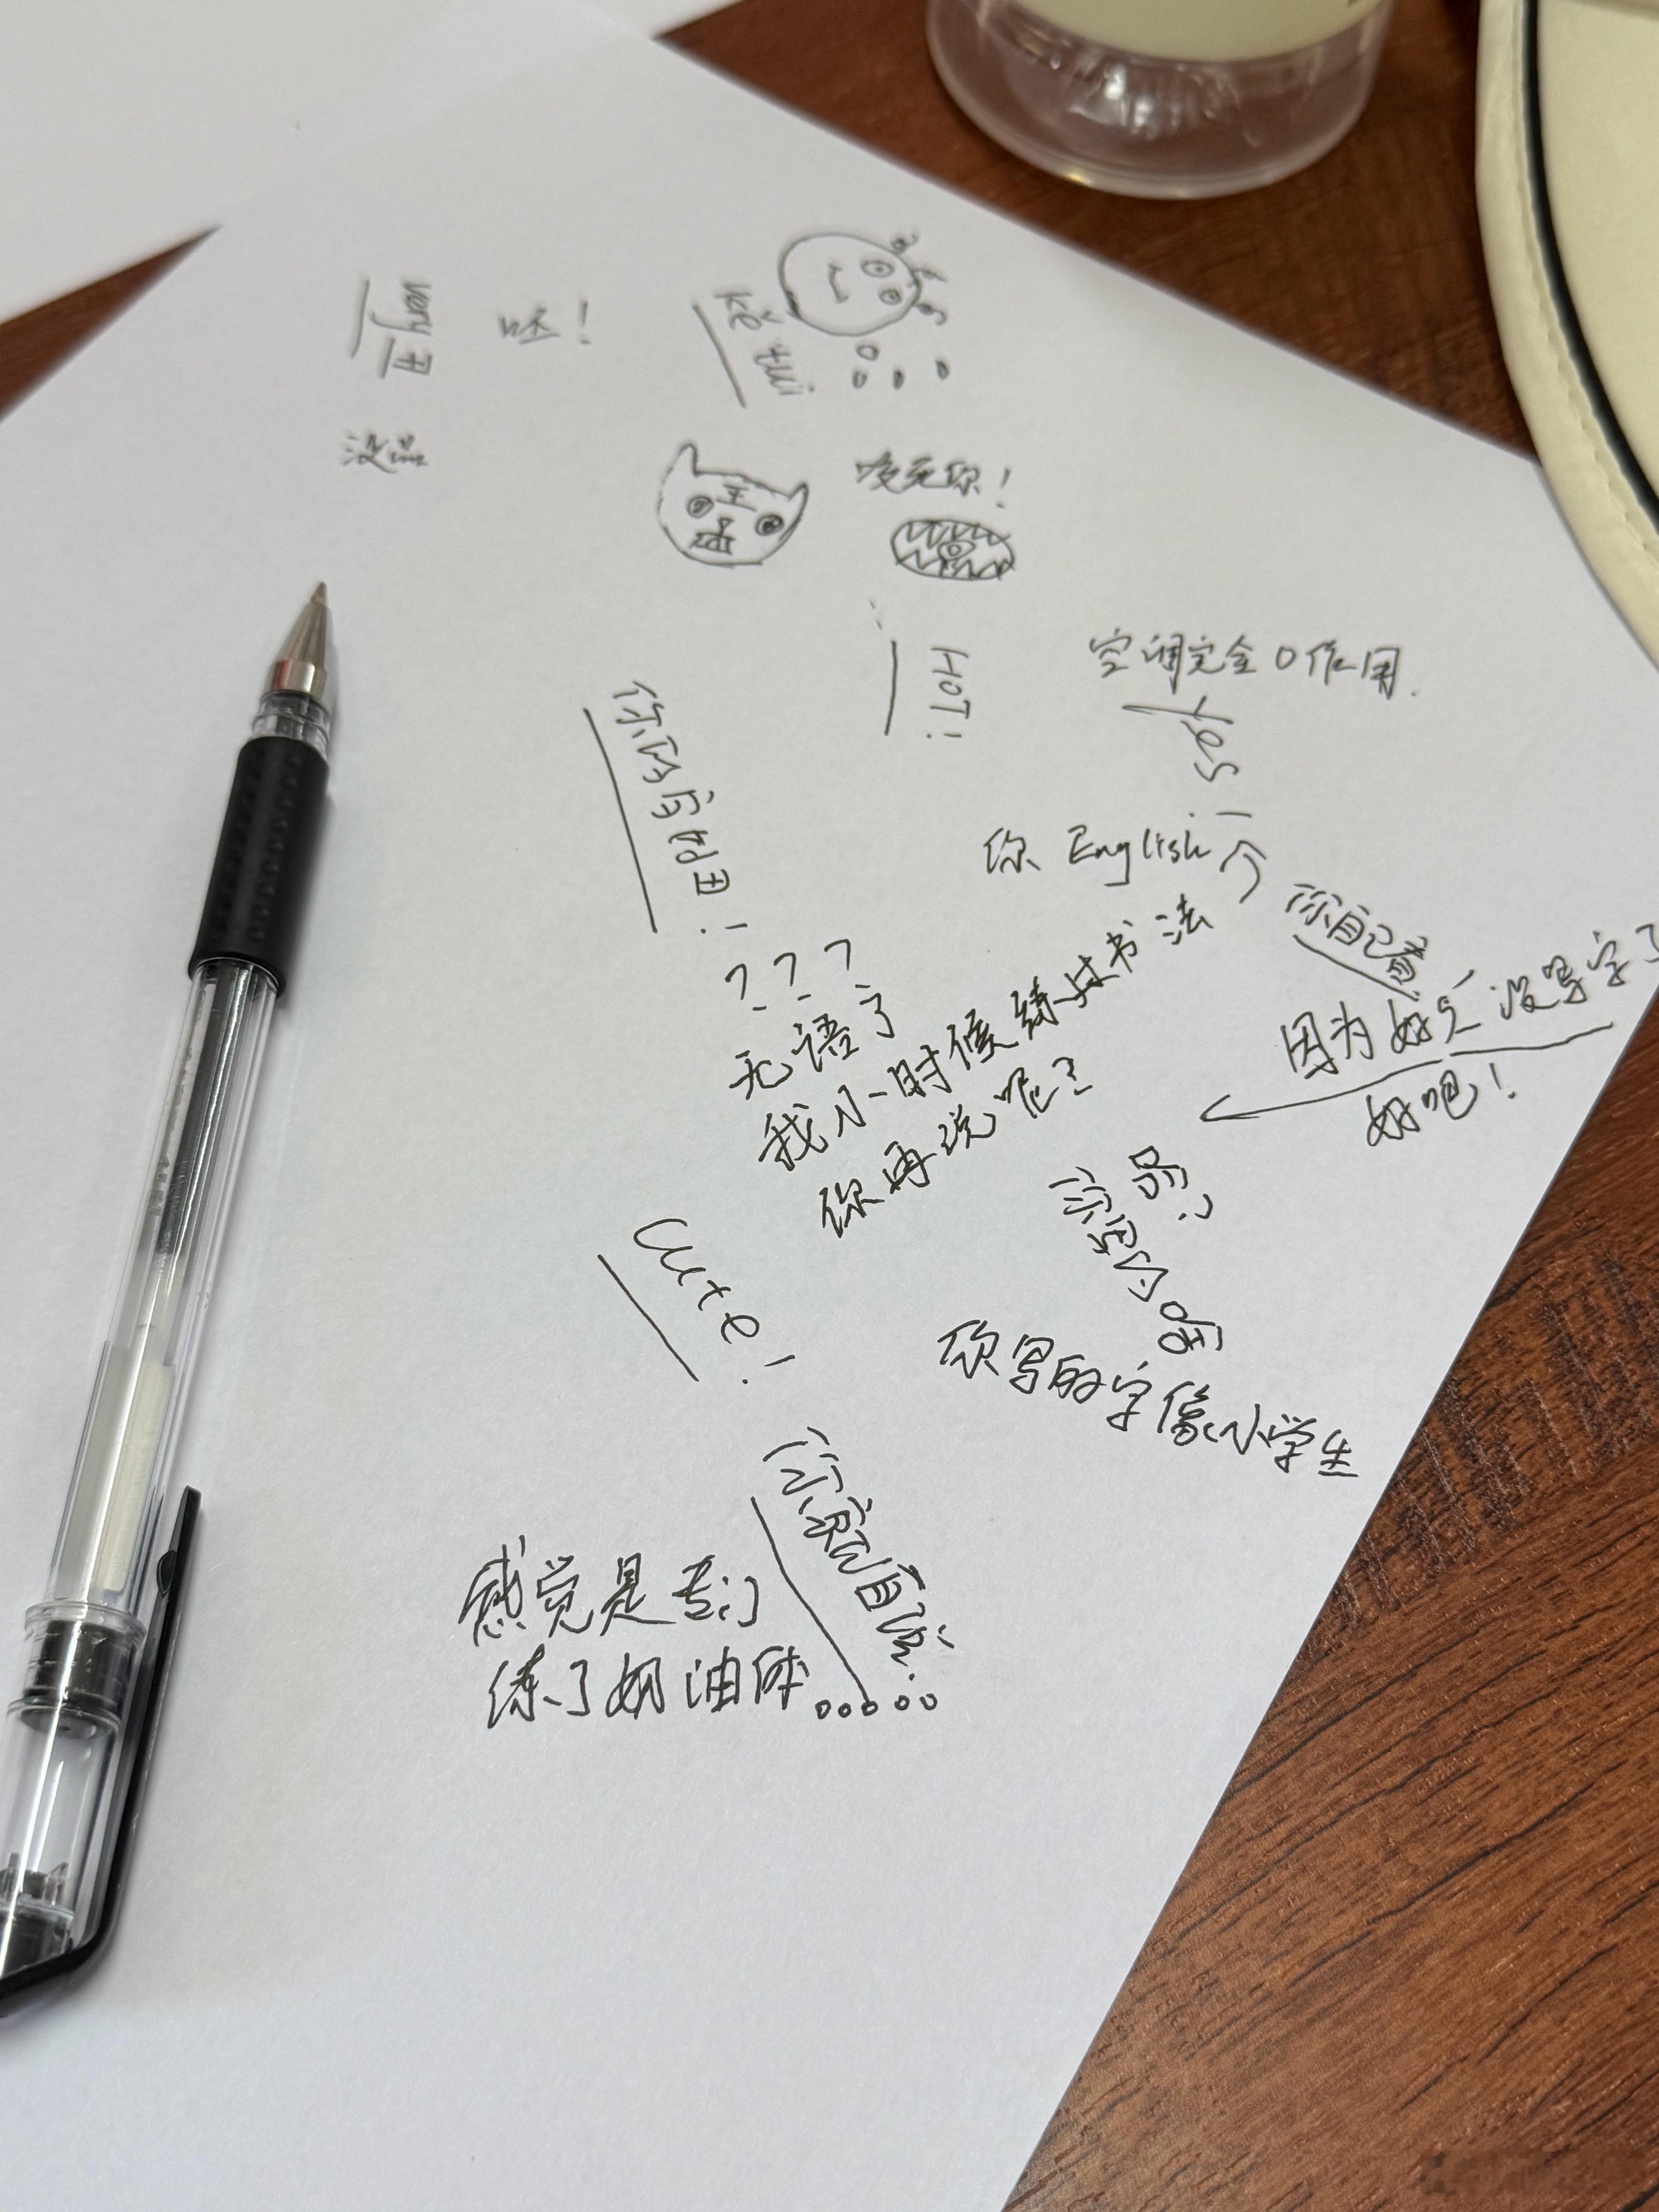 very 丑
呸！
kě tui
没品
王
咬死你！
HOT!
空调完全0作用.
Yes!
你的字好丑！
你 English
你自己看
？？？
无语了
我小时候练过书法
你再说呢？
因为好久没写字了
好吧！
Cute!
你写的字像小学生
感觉是专门
练了奶油体